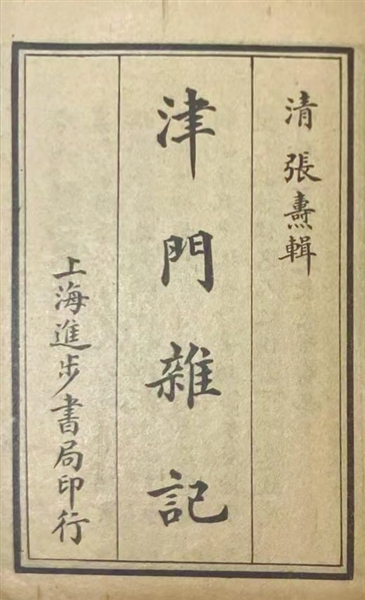 清 張燾輯
津門雜記
上海進步書局印行